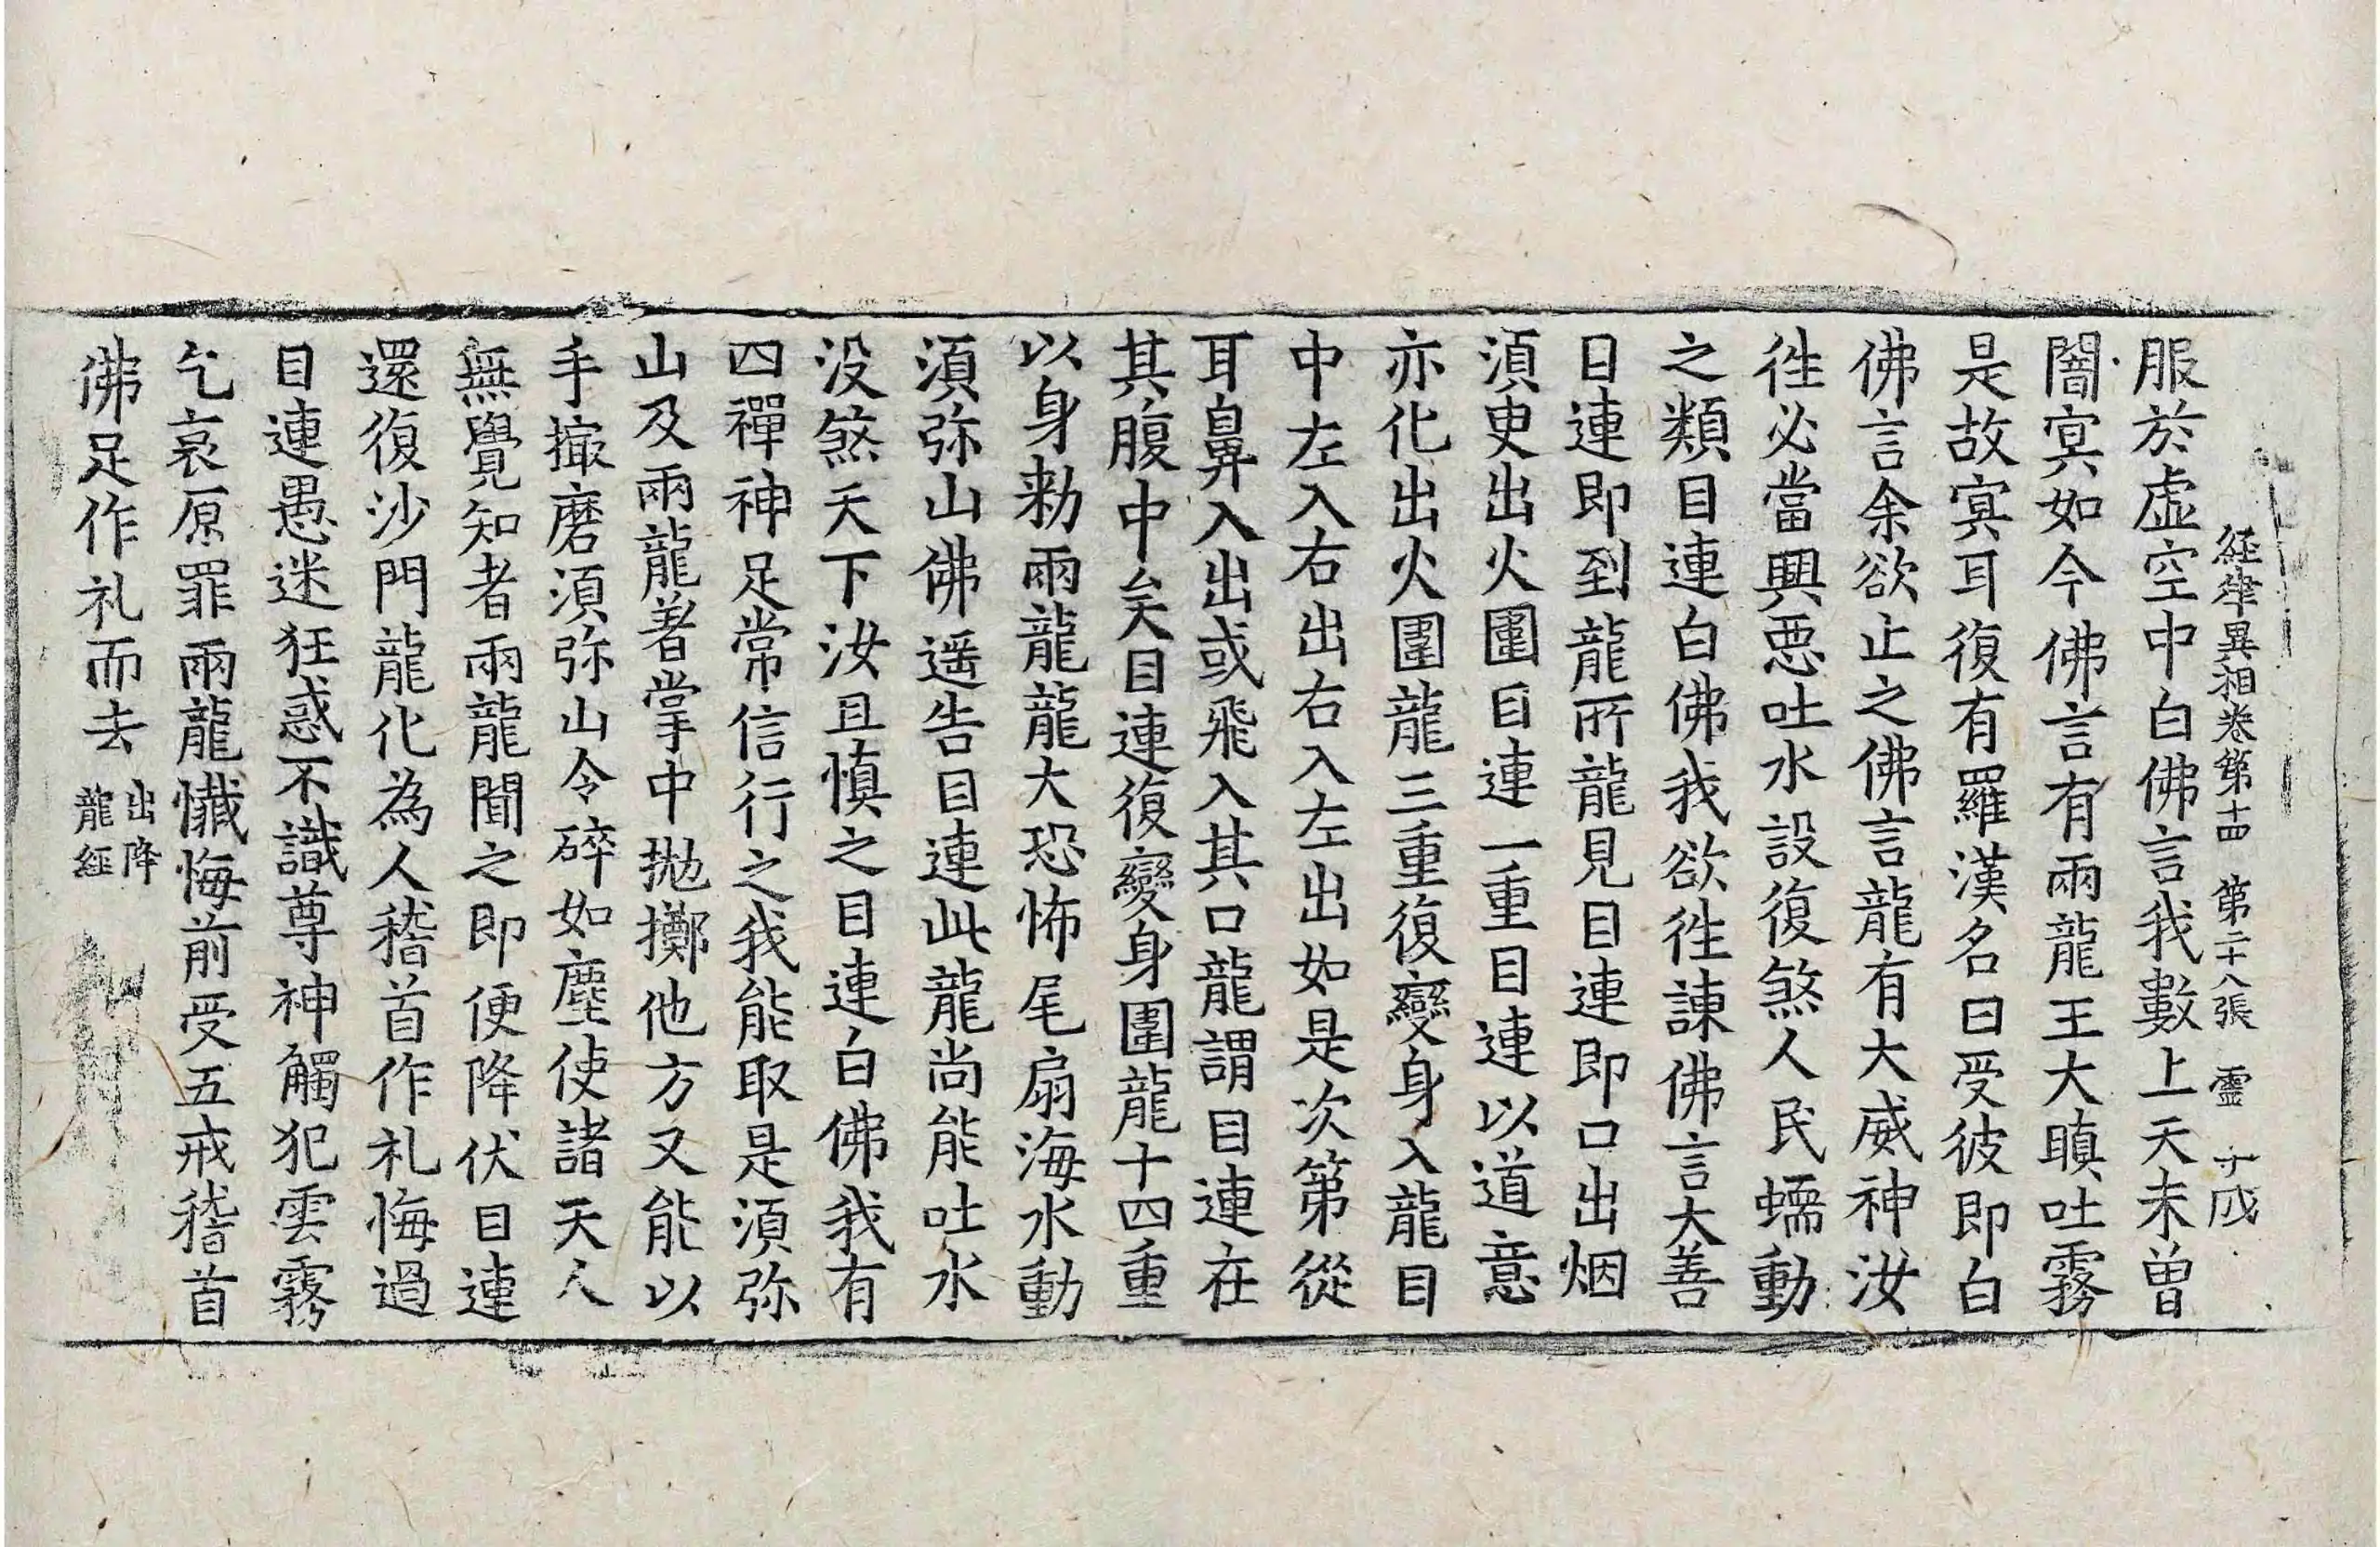 経律異相卷第十四　第二十八張　靈　十
服於虛空中白佛言我數上天未曾
闇冥如今佛言有兩龍王大瞋吐霧
是故冥耳復有羅漢名曰受彼即白
佛言余欲止之佛言龍有大威神汝
徃必當興惡吐水設復煞人民蠕動
之類目連白佛我欲徃諫佛言大善
目連即到龍所龍見目連即口出烟
湏臾出火圍目連一重目連以道意
亦化出火圍龍三重復變身入龍目
中左入右出右入左出如是次第從
耳鼻入出或飛入其口龍謂目連在
其腹中矣目連復變身圍龍十四重
以身勑兩龍龍大恐怖尾扇海水動
湏弥山佛遥告目連此龍尚能吐水
没煞天下汝且慎之目連白佛我有
四禪神足常信行之我能取是湏弥
山及兩龍著掌中抛擲他方又能以
手撮磨湏弥山令碎如塵使諸天人
無覺知者兩龍聞之即便降伏目連
還復沙門龍化為人稽首作礼悔過
目連愚迷狂惑不識尊神觸犯雲霧
乞哀原罪兩龍懺悔前受五戒稽首
佛足作礼而去 出降
龍経